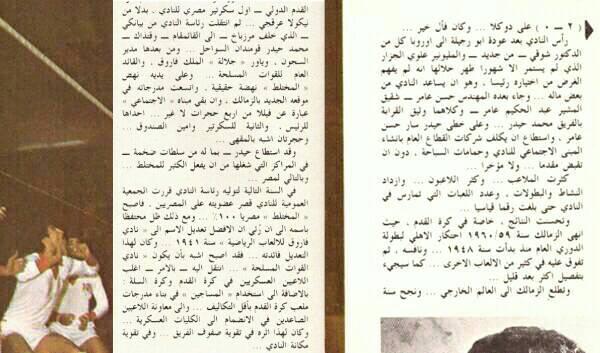 القدم الدولي ـ اول سكرتير مصري للنادي . بدلا من
نيكولا عرفجي ... ثم انتقلت رئاسة النادي من بيانكي
ـ الذي خلف مرزباخ ـ الى القائمقام ـ وقتذاك ـ
محمد حيدر قومندان السواحل ... ومن بعدها مدير
السجون . وياور « جلالة » الملك فاروق . والقائد
العام للقوات المسلحة ... وعلى يديه نهض
« المختلط » نهضة حقيقية . واتسعت مدرجاته في
موقعه الجديد بالزمالك . وان بقي مبناه « الاجتماعي »
عبارة عن فيللا من اربع حجرات لا غير ... احداها
للرئيس . والثانية للسكرتير وامين الصندوق ...
وحجرتان اشبه بالمقهى ...
وقد استطاع حيدر ـ بما له من سلطات ضخمة ـ
في المراكز التي شغلها من ان يفعل الكثير للمختلط ...
وبالتالي لمصر ...
في السنة التالية لتوليه رئاسة النادي قررت الجمعية
العمومية للنادي قصر عضويته على المصريين . فاصبح
« المختلط » مصريا ١٠٠٪ ... ومع ذلك ظل محتفظا
باسمه الى ان رُئي ان الافضل تعديل الاسم « نادي
فاروق للالعاب الرياضية » سنة ١٩٤١ ... وكان لهذا
التعديل فائدته ... فقد اصبح اشبه بأن يكون « نادي
القوات المسلحة » ... انتقل اليه ـ بالامر ـ اغلب
اللاعبين العسكريين في كرة القدم وكرة السلة .
بالاضافة الى استخدام « المساجين » في بناء مدرجات
ملعب كرة القدم بأقل التكاليف ... والى معاونة اللاعبين
الصاعدين في الانضمام الى الكليات العسكرية ...
وكان لهذا اثره في تقوية صفوف الفريق ... وفي تقوية
مكانة النادي ...
( ٢ ـ ٠ ) على دوكلا ... وكان فأل خير ...
رأس النادي بعد عودة ابو رجيلة الى اوروبا كل من
الدكتور شوقي ـ من جديد ـ والمليونير علوي الجزار
الذي لم يستمر الا شهورا ظهر خلالها انه لم يفهم
الغرض من اختياره رئيسا . وهو ان يساعد النادي من
بعض ماله ... وجاء بعده المهندس حسن عامر ـ شقيق
المشير عبد الحكيم عامر ـ وكلاهما وثيق القرابة
بالفريق محمد حيدر ... وعلى خطى حيدر سار حسن
عامر . واستطاع ان يكلف شركات القطاع العام بانشاء
المبنى الاجتماعي للنادي وحمامات السباحة . دون ان
تقبض مقدما ... ولا مؤخرا ...
كثرت الملاعب ... وكثر اللاعبون ... وازداد
النشاط والبطولات . وعدد اللعبات التي تمارس في
النادي حتى بلغت رقما قياسيا ...
وتحسنت النتائج . خاصة في كرة القدم . حيث
انهى الزمالك سنة ١٩٦٠/٥٩ احتكار الاهلي لبطولة
الدوري العام منذ بدأت سنة ١٩٤٨ ... ونافسه . ثم
تفوق عليه في كثير من الالعاب الاخرى ... كما سيجيء
بتفصيل اكثر بعد قليل ...
وتطلع الزمالك الى العالم الخارجي ... ونجح سنة